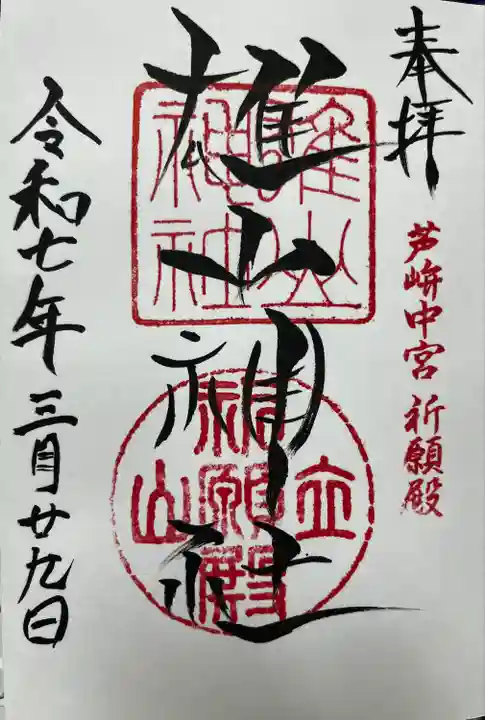 奉拝
芦峅中宮 祈願殿
雄山神社
雄山
神社
立山
祈願殿
令和七年 三月廿九日